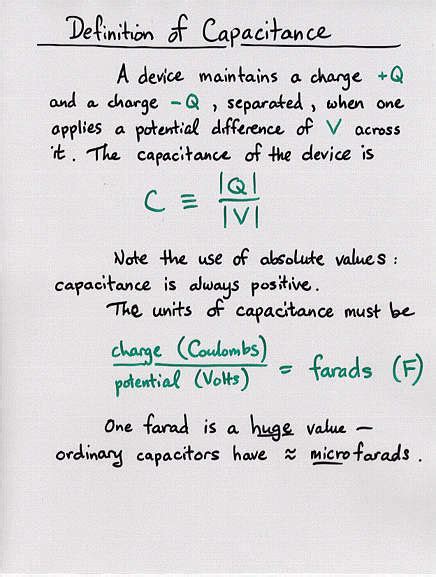 Definition of Capacitance
A device maintains a charge +Q
and a charge -Q, separated, when one
applies a potential difference of V across
it. The capacitance of the device is
C ≡ |Q| / |V|
Note the use of absolute values:
capacitance is always positive.
The units of capacitance must be
charge (Coulombs) / potential (Volts) = farads (F)
One farad is a huge value —
ordinary capacitors have ≈ microfarads.